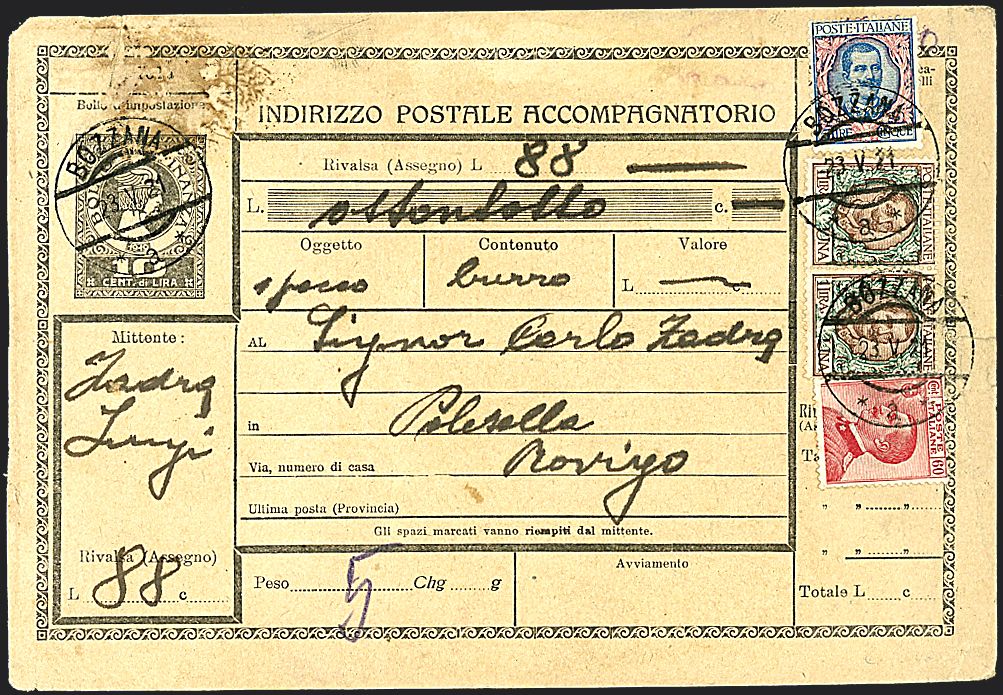 Bollo d'impostazione
BOZZANA
23.V.21
a
10
CENT. di LIRA
INDIRIZZO POSTALE ACCOMPAGNATORIO
Rivalsa (Assegno) L 88
L. ottantotto c.
Oggetto Contenuto Valore
1 pacco burro L c.
AL Signor Carlo Zadra
in Polesella
Via, numero di casa Rovigo
Ultima posta (Provincia)
Gli spazi marcati vanno riempiti dal mittente.
Mittente:
Zadra
Luigi
Rivalsa (Assegno)
L 88 c
Peso 5 Chg g
Avviamento
POSTE·ITALIANE
LIRE CINQUE
BOZZANA
23.V.21
a
POSTE ITALIANE
LIRA UNA
BOZZANA
23.V.21
a
LIRA UNA
POSTE ITALIANE
60
" " "
" " "
Totale L c